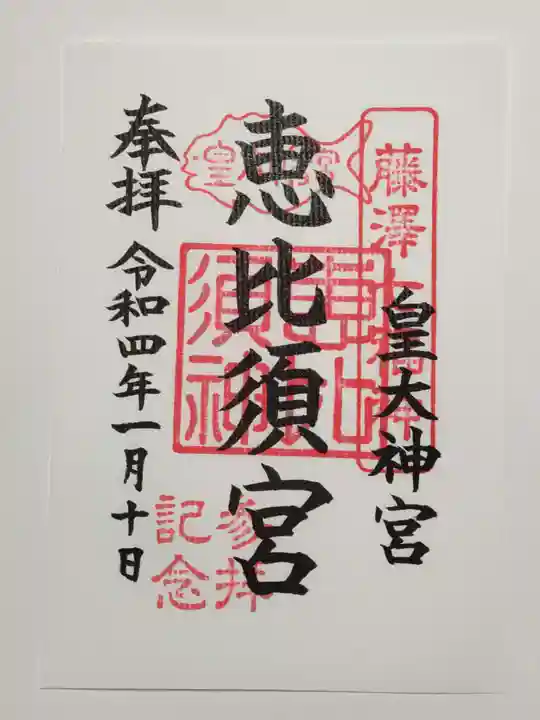 藤澤七福神
皇大神宮
恵比須宮
恵比
須神
参拝
記念
奉拝 令和四年一月十日